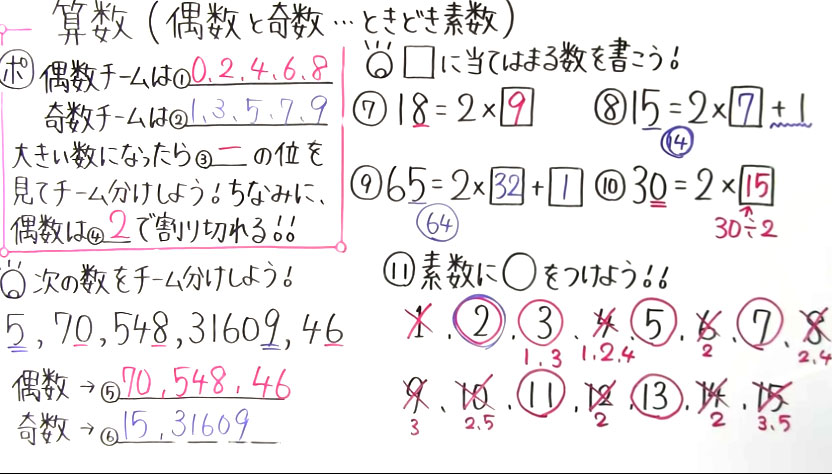 算数(偶数と奇数…ときどき素数)
ポ 偶数チームは①0.2.4.6.8
奇数チームは②1.3.5.7.9
大きい数になったら③一の位を
見てチーム分けしよう!ちなみに、
偶数は④2で割り切れる!!
次の数をチーム分けしよう!
5,70,548,31609,46
偶数→⑤70,548,46
奇数→⑥15,31609
□に当てはまる数を書こう!
⑦18=2×9
⑧15=2×7+1
14
⑨65=2×32+1
64
⑩30=2×15
30÷2
⑪素数に○をつけよう!!
1.2.3.4.5.6.7.8
1.3 1.2.4 2 2.4
9.10.11.12.13.14.15
3 2.5 2 2 3.5